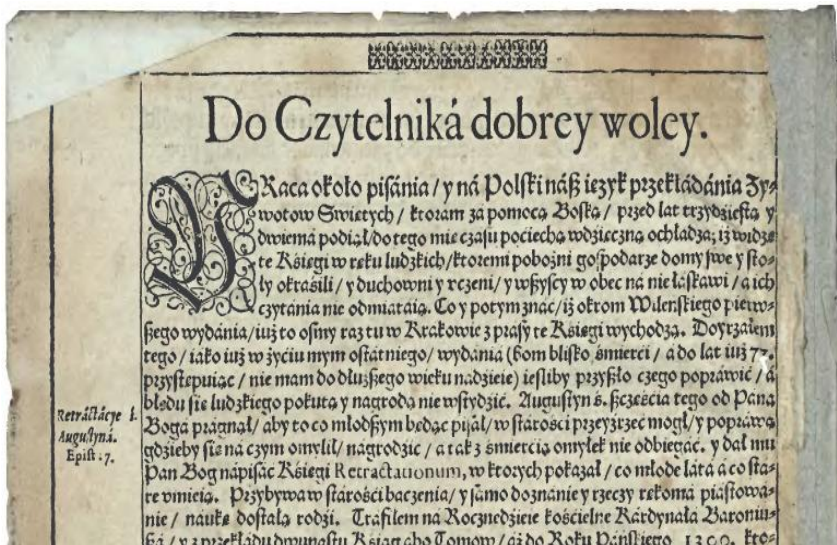 Do Czytelniká dobrey woley.
PRaca około pisánia / y ná Polski náß ięzyk przekłádánia Zy⸗
wotow Swiętych / ktoram zá pomocą Boską / przed lat trzydziestą y
dwiemá podiął / do tego mię czásu pociechą wdzięczną ochładza; iż widzę
te Księgi w ręku ludzkich / ktoremi pobożni gospodarze domy swe y sto⸗
ły okrásili / y duchowni y vczeni / y wßyscy w obec ná nie łáskáwi / á ich
czytánia nie odmiátáią. Co y potym znáć / iż okrom Wileńskiego pierw⸗
ßego wydánia / iuż to osmy raz tu w Krákowie z prásy te Księgi wychodzą. Doyrzałem
tego / iáko iuż w życiu mym ostátniego / wydánia (bom blisko śmierci / á do lat iuż 77.
przystępuiąc / nie mam do dłużßego wieku nádzieie) iesliby przyßło czego popráwić / á
błędu się ludzkiego pokutą y nagrodą nie wstydzić. Augustyn ś. ßczęścia tego od Páná
Bogá prágnął / áby to co młodßym będąc pisał / w stárości przeyźrzeć mogł / y popráwą
gdzieby się ná czym omylił / nágrodzić / á ták z śmiercią omyłek nie odbiegáć. y dał mu
Pan Bog nápisáć Księgi Retractationum, w ktorych pokazał / co młode látá á co stá⸗
re vmieią. Przybywa w stárości baczenia / y sámo doznánie y rzeczy ręką piástowá⸗
nie / náukę dostáłą rodzi. Tráfiłem ná Rocznedzieie kościelne Kárdynałá Baroniu⸗
ßá / y z przekłádu dwunastu Ksiąg ábo Tomow / áż do Roku Páńskiego 1200. kto⸗
Retráctácye ś.
Augustyná.
Epist: 7.